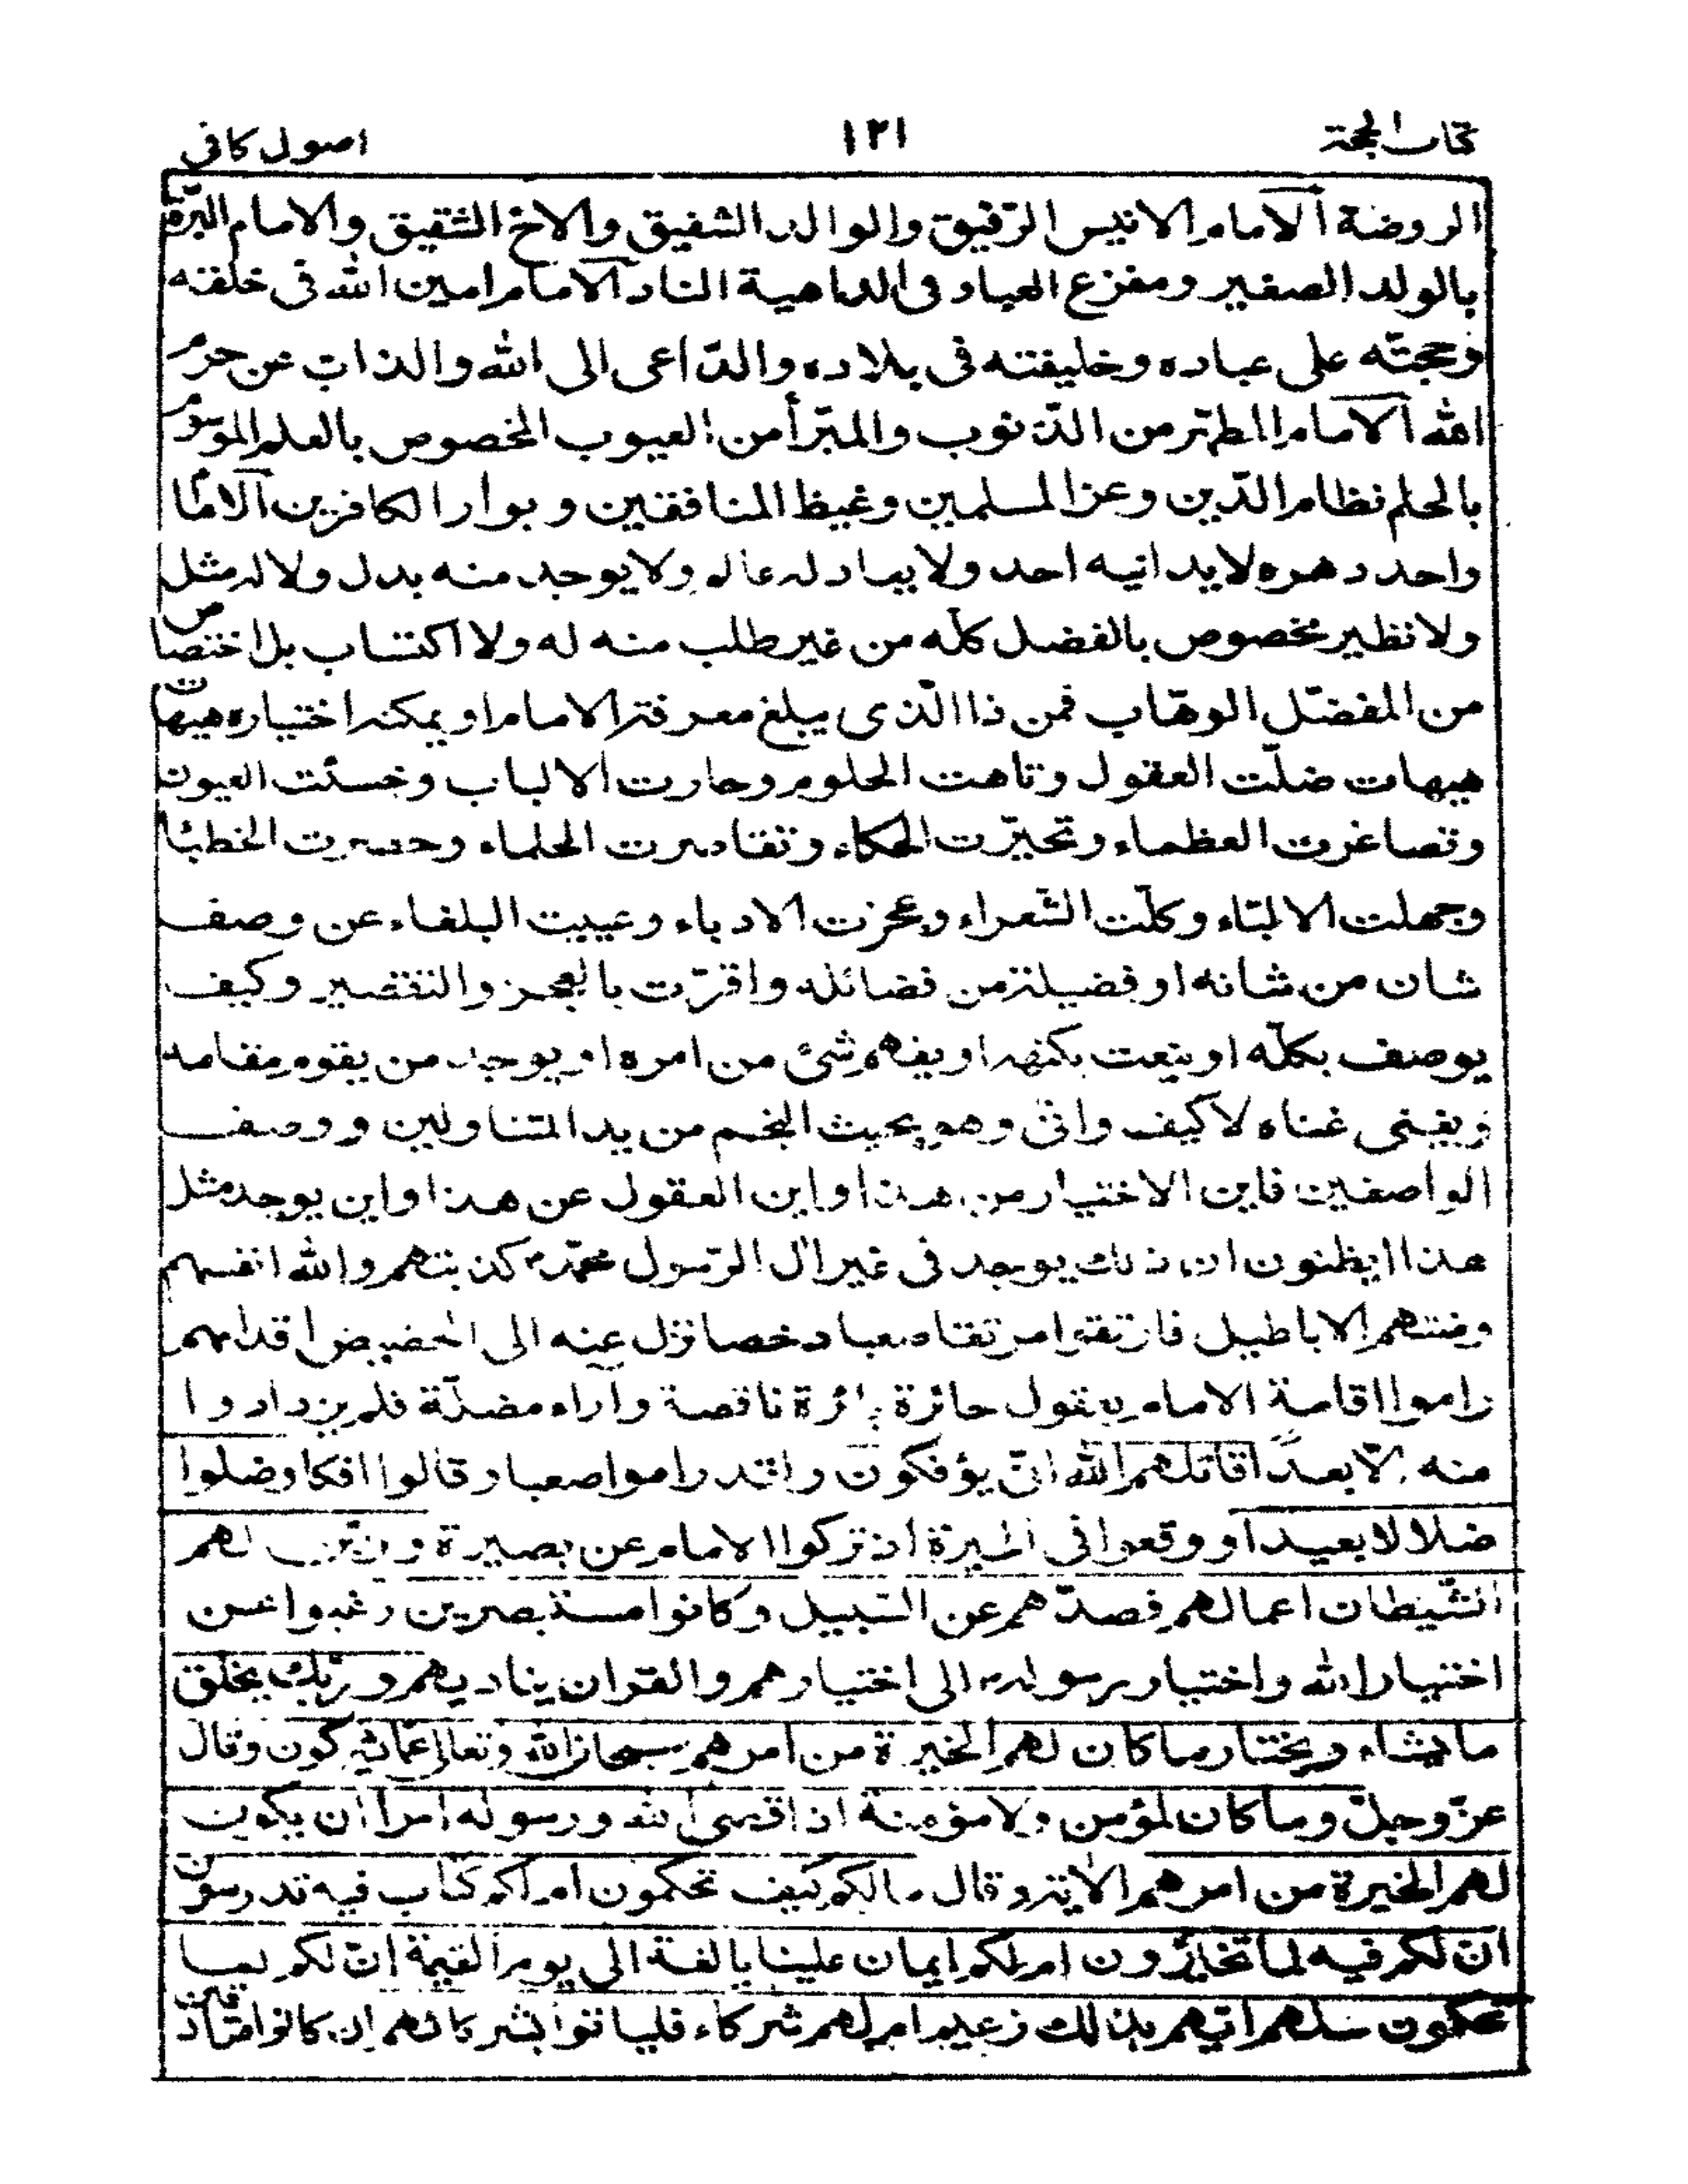 كتاب الحجة ١٢١ اصول كافى
الروضة الامام الانيس الرّفيق والوالد الشفيق والاخ الشقيق والامام البرّة
بالولد الصغير ومفزع العباد فى الداهية الناد الامام امين الله فى خلقه
وحجّته على عباده وخليفته فى بلاده والدّاعى الى الله والذاب عن حرم
الله الامام المطهّر من الذّنوب والمبّرأ من العيوب المخصوص بالعلم الموسوم
بالحلم نظام الدّين وعز المسلمين وغيظ المنافقين وبوار الكافرين الامام
واحد دهره لا يدانيه احد ولا يعادله عالم ولا يوجد منه بدل ولا له مثل
ولا نظير مخصوص بالفضل كلّه من غير طلب منه له ولا اكتساب بل اختصاص
من المفضّل الوهّاب فمن ذا الّذى يبلغ معرفة الامام او يمكنه اختياره هيهات
هيهات ضلّت العقول وتاهت الحلوم وحارت الالباب وخسئت العيون
وتصاغرت العظماء وتحيّرت الحكماء وتقاصرت الحلماء وحصرت الخطباء
وجهلت الالبّاء وكلّت الشّعراء وعجزت الادباء وعييت البلغاء عن وصف
شان من شانه او فضيلة من فضائله واقرّت بالعجز والتقصير وكيف
يوصف بكلّه او ينعت بكنهه او يفهم شئ من امره او يوجد من يقوم مقامه
ويغنى غناه لا كيف وانّى وهو بحيث النجم من يد المتناولين ووصف
الواصفين فاين الاختيار من هذا واين العقول عن هذا واين يوجد مثل
هذا ايظنون ان ذلك يوجد فى غير ال الرّسول محمّد ص كذبتهم والله انفسهم
ومنتهم الاباطيل فارتقوا مرتقا صعبا دحضا تزل عنه الى الحضيض اقدامهم
راموا اقامة الامام بعقول حائرة بائرة ناقصة وآراء مضلّة فلم يزدادوا
منه الّا بعدًا قاتلهم الله انّى يؤفكون ولقد راموا صعبا وقالوا افكا وضلوا
ضلالا بعيدا ووقعوا فى الحيرة اذ تركوا الامام عن بصيرة وزيّن لهم
الشّيطان اعمالهم فصدّهم عن السّبيل وكانوا مستبصرين رغبوا عن
اختيار الله واختيار رسوله الى اختيارهم والقران يناديهم وربّك يخلق
ما يشاء ويختار ما كان لهم الخيرة من امرهم سبحان الله وتعالى عمّا يشركون وقال
عزّ وجلّ وما كان لمؤمن ولا مؤمنة اذا قضى الله ورسوله امرا ان يكون
لهم الخيرة من امرهم الاية وقال ما لكم كيف تحكمون ام لكم كتاب فيه تدرسون
انّ لكم فيه لما تخيّرون ام لكم ايمان علينا بالغة الى يوم القيمة انّ لكم لما
تحكمون سلهم ايّهم بذلك زعيم ام لهم شركاء فلياتوا بشركائهم ان كانوا صادقين